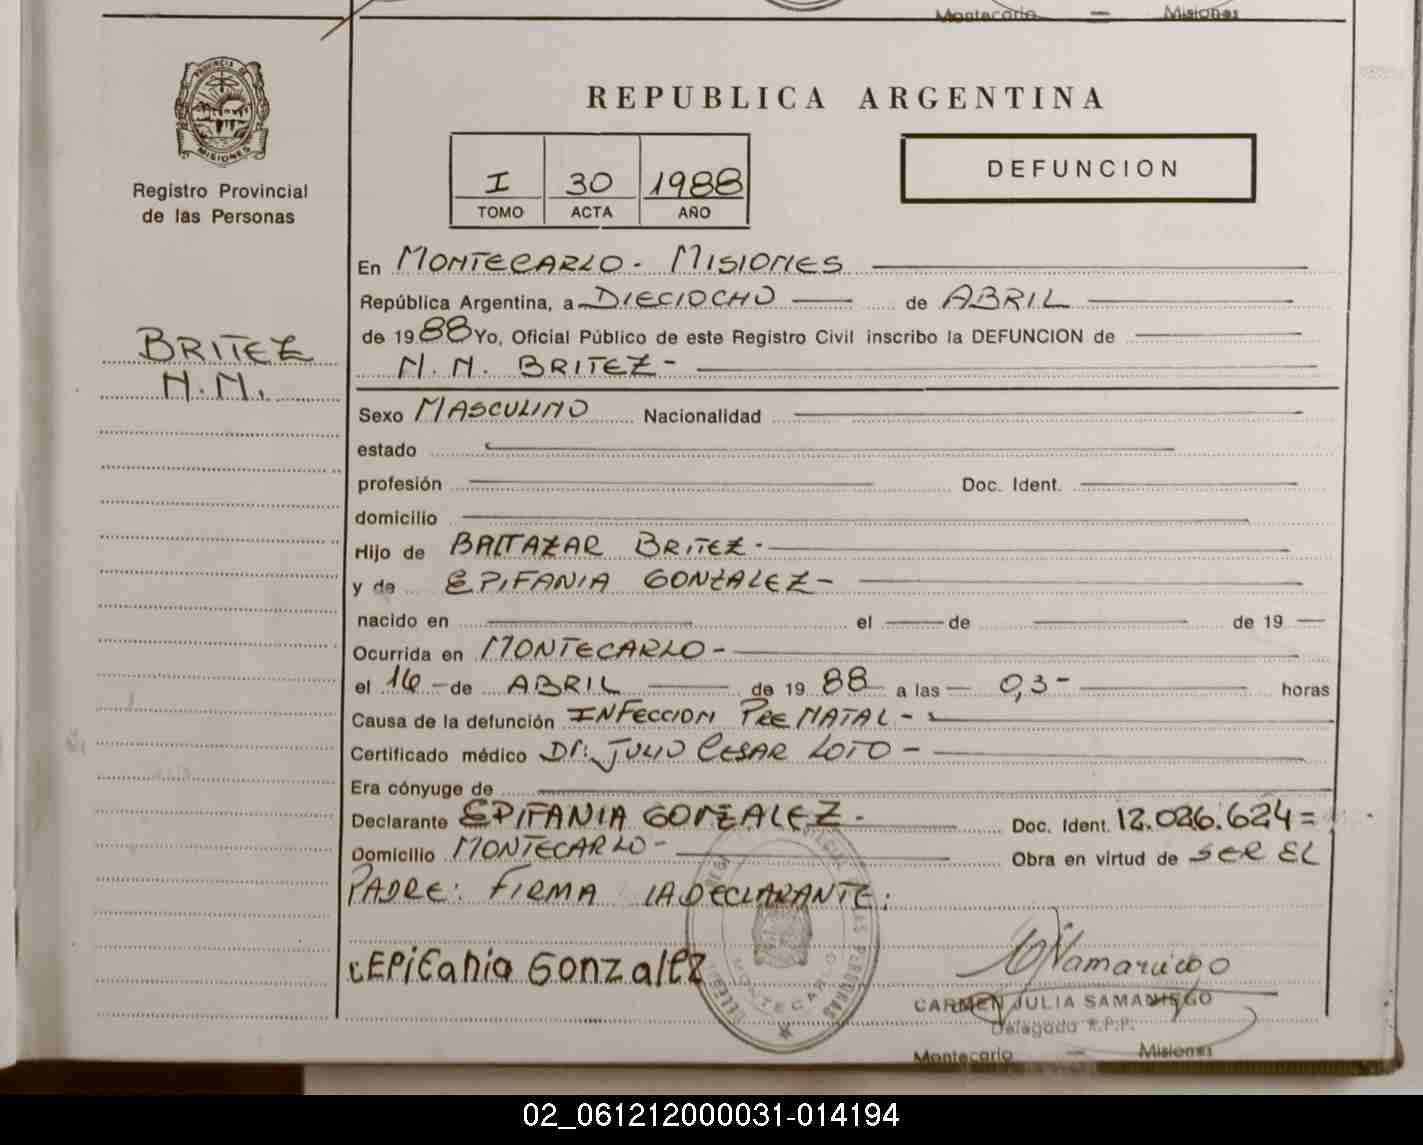 Montecarlo — Misiones
PROVINCIA DE
MISIONES
Registro Provincial
de las Personas
BRITEZ
N.N.
REPUBLICA ARGENTINA
I 30 1988
TOMO ACTA AÑO
DEFUNCION
En MONTECARLO - MISIONES
República Argentina, a DIECIOCHO de ABRIL
de 1988 Yo, Oficial Público de este Registro Civil inscribo la DEFUNCION de
N. N. BRITEZ -
Sexo MASCULINO Nacionalidad
estado
profesión Doc. Ident.
domicilio
Hijo de BALTAZAR BRITEZ -
y de EPIFANIA GONZALEZ -
nacido en el de de 19
Ocurrida en MONTECARLO -
el 16 - de ABRIL de 1988 a las — 0,3 - horas
Causa de la defunción INFECCION PRE NATAL -
Certificado médico Dr: JULIO CESAR LOTO -
Era cónyuge de
Declarante EPIFANIA GONZALEZ - Doc. Ident. 12.026.624=
Domicilio MONTECARLO - Obra en virtud de SER EL
PADRE: FIRMA LA DECLARANTE:
EPiFania Gonzalez
MONTECARLO
CARMEN JULIA SAMANIEGO
Delegada R.P.P.
Montecarlo — Misiones
02_061212000031-014194